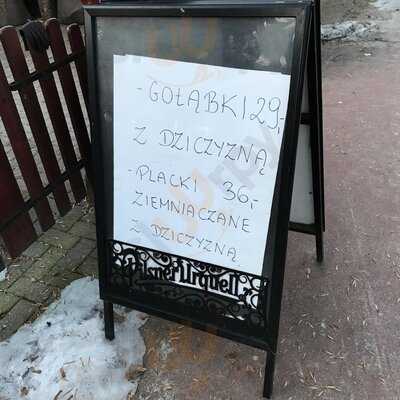 - GOŁĄBKI 29,-
Z DZICZYZNĄ
- PLACKI 36,-
ZIEMNIACZANE
Z DZICZYZNĄ
Pilsner Urquell